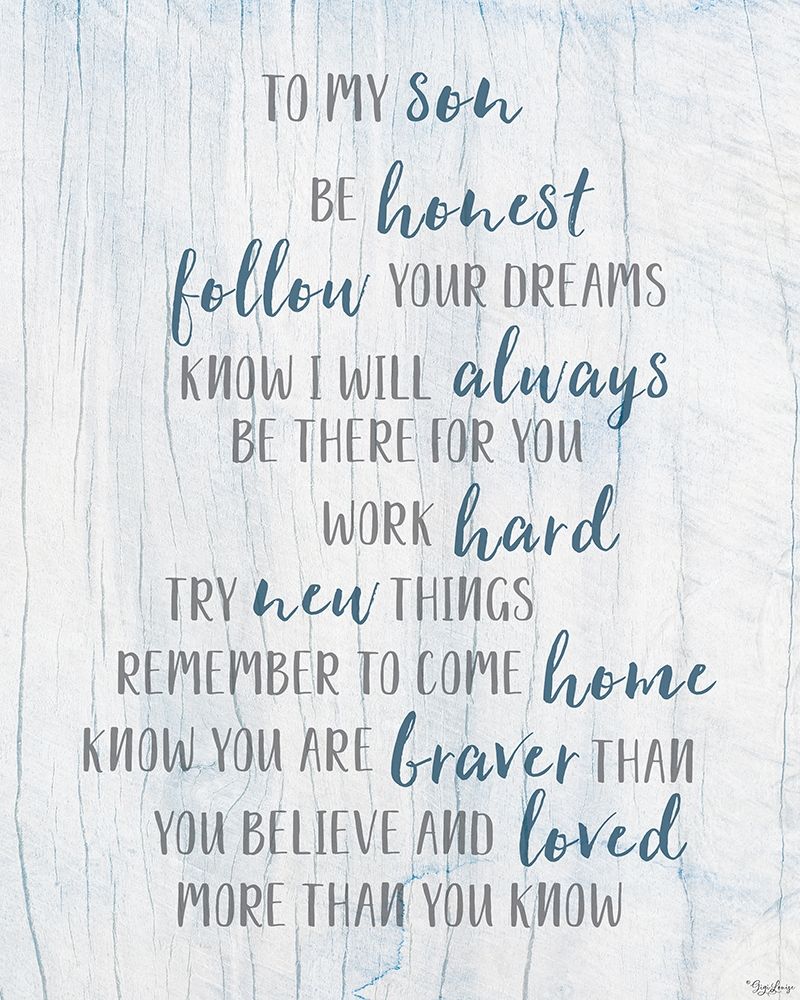 TO MY son
BE honest
follow YOUR DREAMS
KNOW I WILL always
BE THERE FOR YOU
WORK hard
TRY new THINGS
REMEMBER TO COME home
KNOW YOU ARE braver THAN
YOU BELIEVE AND loved
MORE THAN YOU KNOW
©Gigi Louise